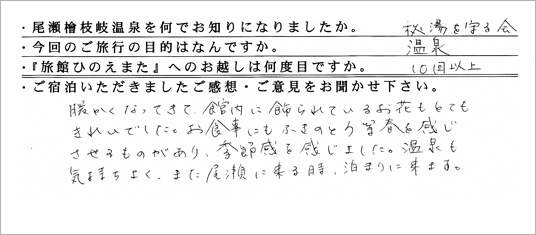 ・尾瀬檜枝岐温泉を何でお知りになりましたか。 秘湯を守る会
・今回のご旅行の目的はなんですか。 温泉
・『旅館ひのえまた』へのお越しは何度目ですか。 10回以上
・ご宿泊いただきましたご感想・ご意見をお聞かせ下さい。
暖かくなってきて、館内に飾られているお花もとても
きれいでした。お食事にもふきのとう等春を感じ
させるものがあり、季節感を感じました。温泉も
気持ちよく、また尾瀬に来る時、泊まりに来ます。